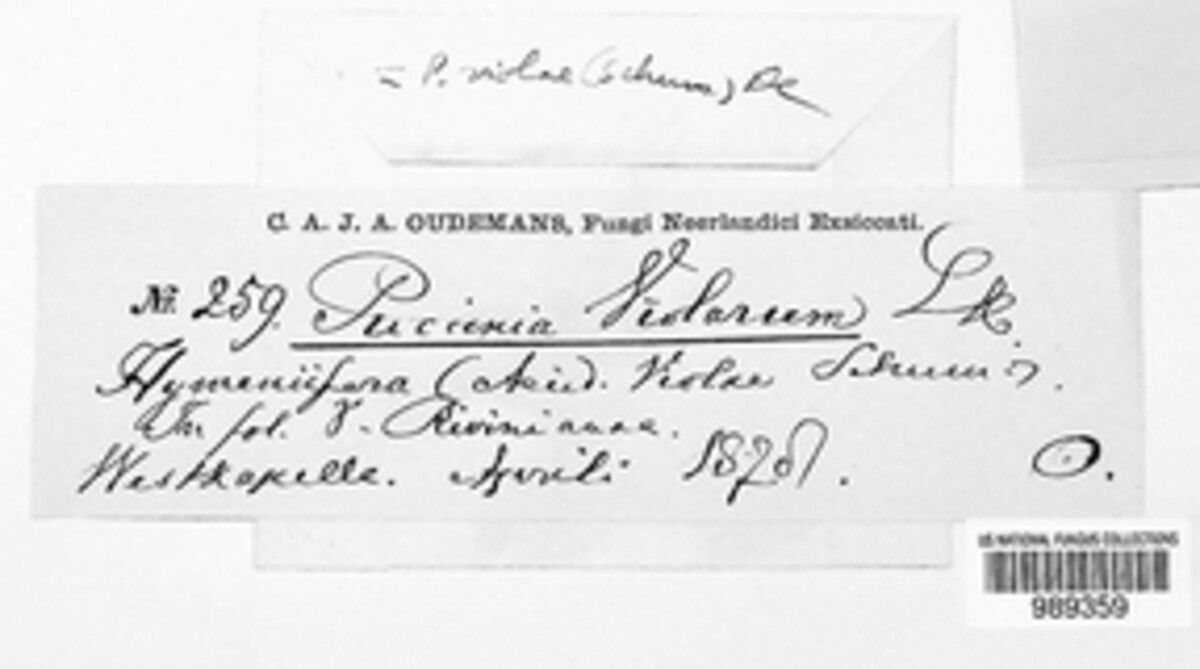 = P. violae (Schum) DC
C. A. J. A. OUDEMANS, Fungi Neerlandici Exsiccati.
№ 259. Puccinia Violarum Lk.
Hymeniifera (Aecid. Violae Schum.).
In fol. V. Rivinianae.
Westkapelle. Aprili 1876.
O.
US NATIONAL FUNGUS COLLECTIONS
989359